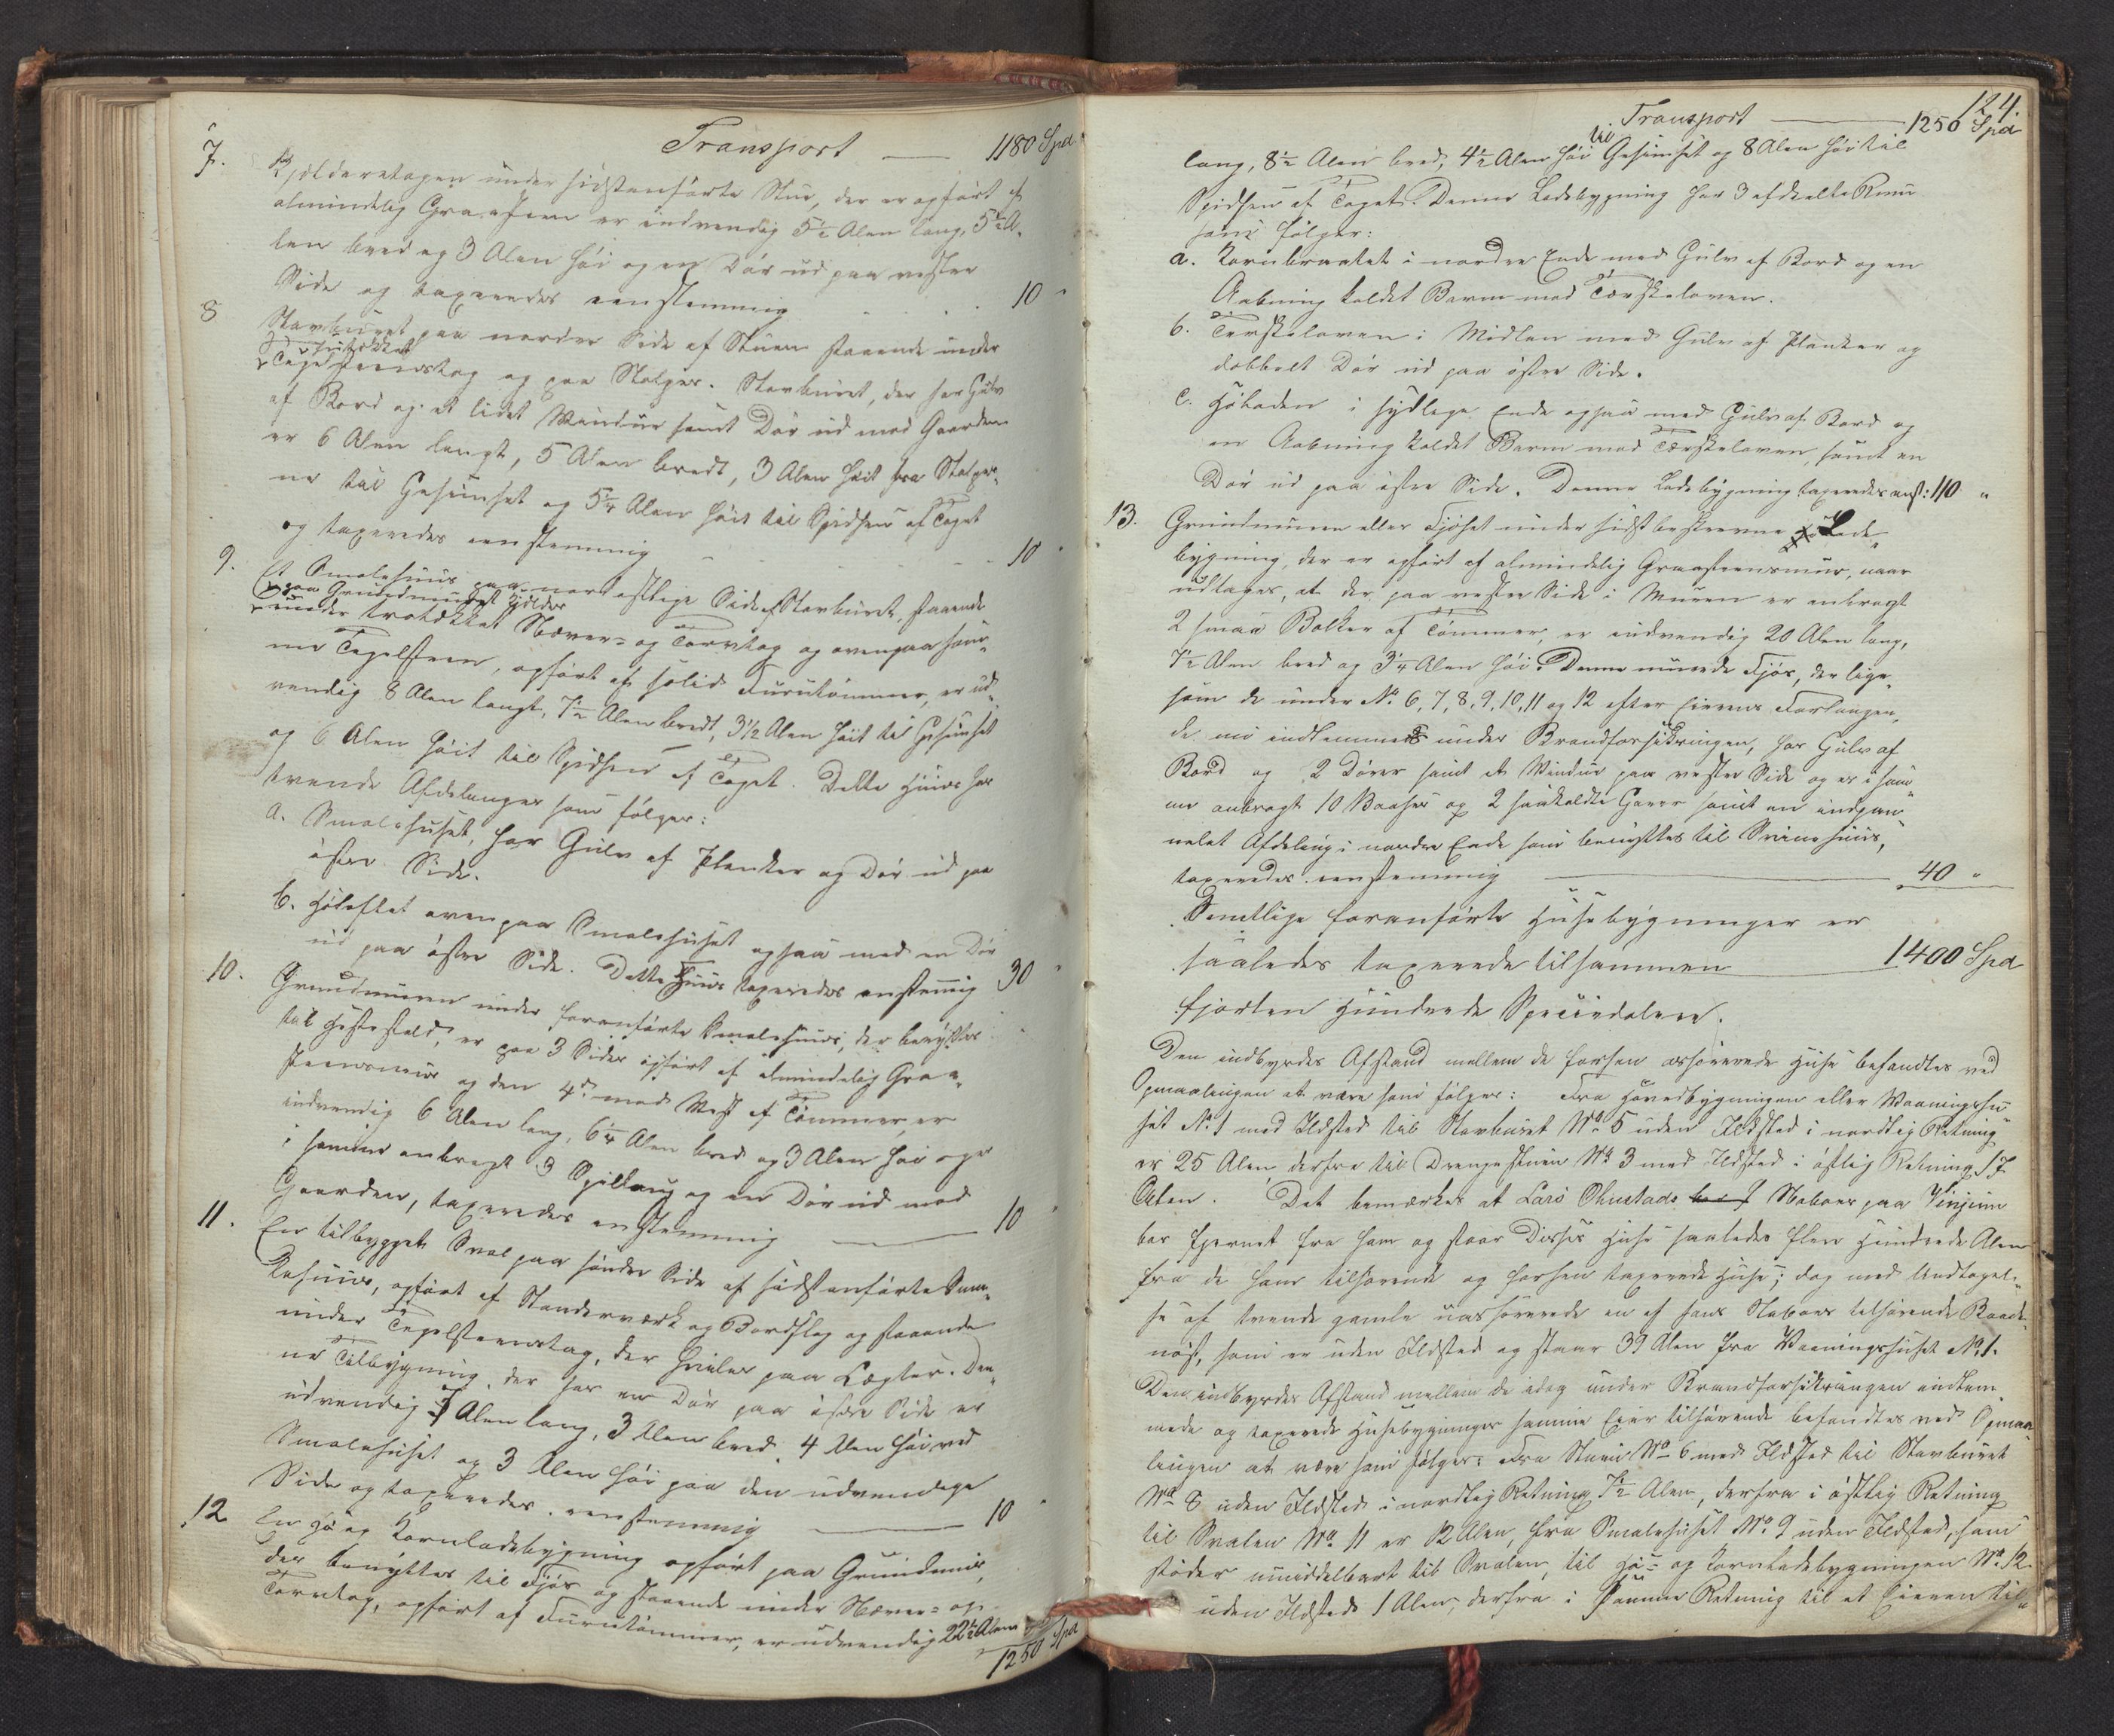 Transport — 1180 Spd
7. Kjelderetagen under sidstanførte Stue, der er opført af
almindelig Graasteen er indvendig 5½ Alen lang, 5½ A-
len bred og 3 Alen høi og en Dør ud paa vestre
Side og taxeredes eenstemmig 10 "
8 Stavburet paa nordre Side af Stuen staaende under
Tegelsteenstag og paa Stolper. Stavburet, der har Gulv
af Bord og et lidet Vindue samt Dør ud mod Gaarden
er 6 Alen langt, 5 Alen bredt, 3 Alen høit fra Stolper-
ne til Gesimset og 5¼ Alen høit til Spidsen af Taget
og taxeredes eenstemmig 10 "
9. Et Smalehuus paa nordostlige Side af Stavburet, staaende
paa Grundmuret Kjelder
under Næver- og Torvtag og ovenpaa sam-
me Tegelsteen, opført af solid Furutømmer, er ud-
vendig 8 Alen langt, 7½ Alen bredt, 3½ Alen høit til Gesimset
og 6 Alen høit til Spidsen af Taget. Dette Huus har
tvende Afdelinger som følger:
a. Smalehuset, har Gulv af Planker og Dør ud paa
østre Side.
b. Høloftet ovenpaa Smalehuset ogsaa med en Dør
ud paa østre Side. Dette Huus taxeredes enstemmig 30 "
10. Grundmuren under foranførte Smalehuus, der benyttes
til Hestestald, er paa 3 Sider opført af almindelig Graa-
steensmuur og den 4de mod Vest af Tømmer, er
indvendig 6 Alen lang, 6¼ Alen bred og 3 Alen høi og er
i samme anbragt 3 Spiltaug og en Dør ud mod
Gaarden, taxeredes enstemmig — 10 "
11. En tilbygget Sval paa søndre Side af sidstanførte Sma-
lehuus, opført af Standerværk og Bordslag og staaende
under Tegelsteenstag, der hviler paa Lægter. Den-
ne Tilbygning, der har en Dør paa østre Side er
udvendig 7 Alen lang, 3 Alen bred, 4 Alen høi ved
Smalehuset og 3 Alen høi paa den udvendige
Side og taxeredes eenstemmig — 10 "
12 En Hø og Kornladebygning opført paa Grundmuur,
der benyttes til Fjøs og staaende under Næver- og
Torvtag, opført af Furutømmer, er udvendig 22½ Alen
1250 Spd
124.
Transport — 1250 Spd
lang, 8½ Alen bred, 4½ Alen høi til Gesimset og 8 Alen høi til
Spidsen af Taget. Denne Ladebygning har 3 afdeelte Rum
som følger:
a. Kornbraatet i nordre Ende med Gulv af Bord og en
Aabning kaldet Barm mod Tærskeloven.
b. Tærskeloven i Midten med Gulv af Planker og
dobbelt Dør ud paa østre Side.
c. Høladen i sydlige Ende ogsaa med Gulv af Bord og
en Aabning kaldet Barm mod Tærskeloven, samt en
Dør ud paa østre Side. Denne Ladebygning taxeredes enst: 110 "
13. Grundmuren eller Fjøset under sidstbeskrevne Lade-
bygning, der er opført af almindelig Graasteensmuur, naar
undtages, at der paa vestre Side i Muren er anbragt
2 smaa Bolker af Tømmer, er indvendig 20 Alen lang,
7½ Alen bred og 3¼ Alen høi. Denne murede Fjøs, der lige-
som de under No 6, 7, 8, 9, 10, 11 og 12 efter Eierens Forlangen-
de nu indlemmes under Brandforsikringen, har Gulv af
Bord og 2 Døre samt et Vindue paa vestre Side og er i sam-
me anbragt 10 Baaser og 2 saakaldte Garer samt en indpan-
nelet Afdeling i nordre Ende som benyttes til Svinehuus,
taxeredes eenstemmig — 40 "
Samtlige foranførte Husebygninger er
saaledes taxerede tilsammen — 1400 Spd
fjorten Hundrede Speciedaler.
Den indbyrdes Afstand mellem de forhen assurerede Huse befandtes ved
Opmaalingen at være som følger: Fra Hovedbygningen eller Vaaningshu-
set No 1 med Ildsted til Stavburet No 5 uden Ildsted i nordlig Retning
er 25 Alen derfra til Drengestuen No 3 med Ildsted i østlig Retning 17
Alen. Det bemærkes at Lars Ohnstads Naboer paa Vinjum
bor fjernet fra ham og staar Disses Huse saaledes flere Hundrede Alen
fra de ham tilhørende og forhen taxerede Huse; dog med Undtagel-
se af tvende gamle uassurerede en af hans Naboer tilhørende Baade-
nøst, som er uden Ildsted og staar 39 Alen fra Vaaningshuset No 1.
Den indbyrdes Afstand mellem de idag under Brandforsikringen indlem-
mede og taxerede Husebygninger samme Eier tilhørende befandtes ved Opmaa-
lingen at være som følger: Fra Stuen No 6 med Ildsted til Stavburet
No 8 uden Ildsted i nordlig Retning 7½ Alen, derfra i østlig Retning
til Svalen No 11 er 12 Alen, fra Smalehuset No 9 uden Ildsted, som
støder umiddelbart til Svalen, til Hø- og Kornladebygningen No 12
uden Ildsted 1 Alen, derfra i samme Retning til et Eieren til-